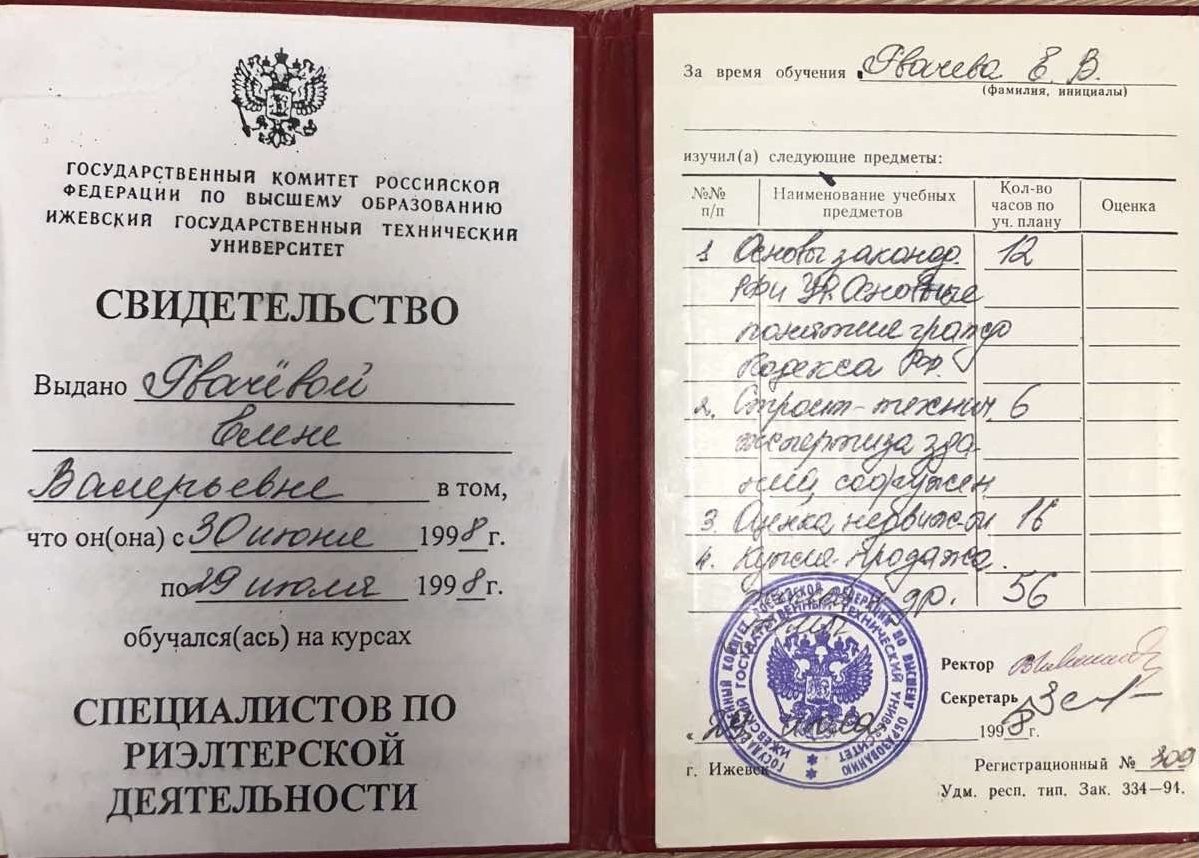 ГОСУДАРСТВЕННЫЙ КОМИТЕТ РОССИЙСКОЙ
ФЕДЕРАЦИИ ПО ВЫСШЕМУ ОБРАЗОВАНИЮ
ИЖЕВСКИЙ ГОСУДАРСТВЕННЫЙ ТЕХНИЧЕСКИЙ
УНИВЕРСИТЕТ
СВИДЕТЕЛЬСТВО
Выдано Гвачёвой
Елене
Валерьевне в том,
что он(она) с 30 июня 1998 г.
по 29 июля 1998 г.
обучался(ась) на курсах
СПЕЦИАЛИСТОВ ПО
РИЭЛТЕРСКОЙ
ДЕЯТЕЛЬНОСТИ
За время обучения Гвачева Е. В.
(фамилия, инициалы)
изучил(а) следующие предметы:
№№ п/п Наименование учебных предметов Кол-во часов по уч. плану Оценка
1 Основы законод. 12
РФ и УР. Основные
понятие гражд
Кодекса РФ.
2. Строит-технич 6
экспертиза зда
ний, сооружен
3. Оценка недвиж-ти 16
4. Купля-продажа.
др. 56
ГОСУДАРСТВЕННЫЙ КОМИТЕТ РОССИЙСКОЙ ФЕДЕРАЦИИ ПО ВЫСШЕМУ ОБРАЗОВАНИЮ
ИЖЕВСКИЙ ГОСУДАРСТВЕННЫЙ ТЕХНИЧЕСКИЙ УНИВЕРСИТЕТ
Ректор
Секретарь
„ 29 июля 1998 г.
г. Ижевск Регистрационный № 309
Удм. респ. тип. Зак. 334—94.